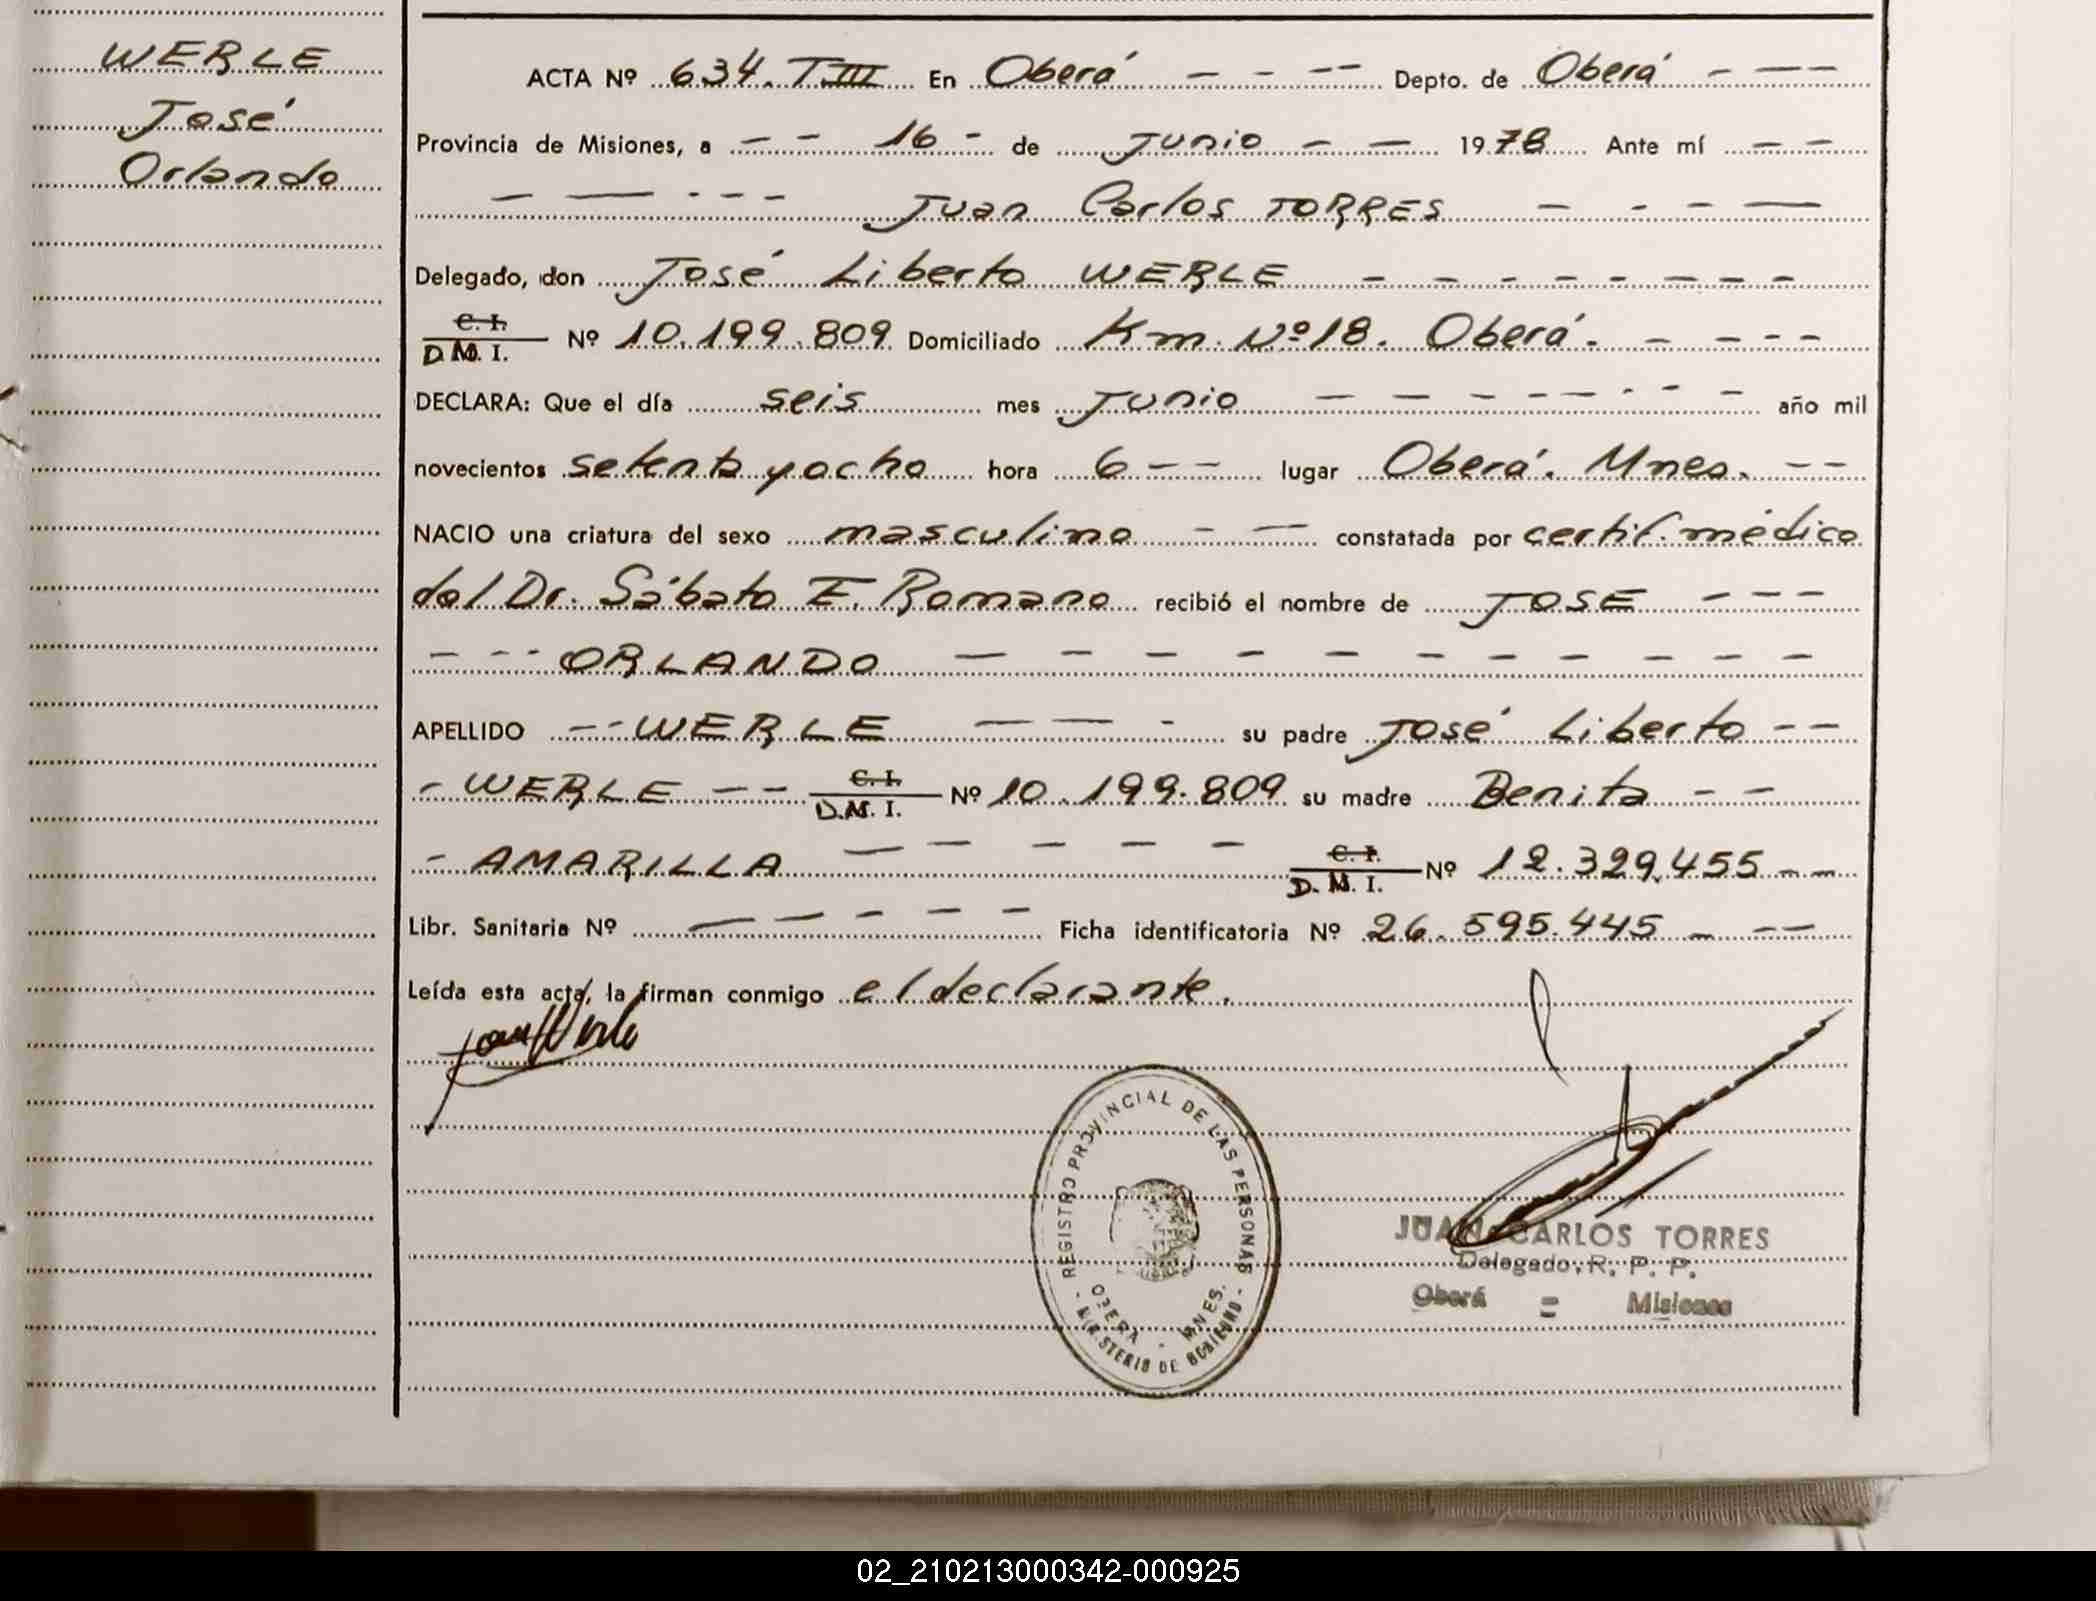 WERLE
José
Orlando
ACTA Nº 634. T III En Oberá - - - - Depto. de Oberá - - -
Provincia de Misiones, a - - 16 - de Junio - - 1978 Ante mí - -
- - - - - Juan Carlos TORRES - - - -
Delegado, don José Liberto WERLE - - - - - - - -
C. I.
D. M. I. Nº 10.199.809 Domiciliado Km. Nº 18. Oberá. - - - -
DECLARA: Que el día seis mes Junio - - - - - - - - año mil
novecientos setenta y ocho hora 6 - - - lugar Oberá. Mnes. - -
NACIO una criatura del sexo masculino - - constatada por certif. médico
del Dr. Sábato E. Romano recibió el nombre de JOSE - - - -
- - - ORLANDO - - - - - - - - - - -
APELLIDO - - WERLE - - - su padre José Liberto - -
- WERLE - - C. I.
D. M. I. Nº 10.199.809 su madre Benita - -
- AMARILLA - - - - - C. I.
D. M. I. Nº 12.329.455 - -
Libr. Sanitaria Nº - - - - - Ficha identificatoria Nº 26.595.445 - - -
Leída esta acta, la firman conmigo el declarante.
REGISTRO PROVINCIAL DE LAS PERSONAS
OBERA - MNES.
- MINISTERIO DE GOBIERNO -
JUAN CARLOS TORRES
Delegado R. P. P.
Oberá = Misiones
02_210213000342-000925